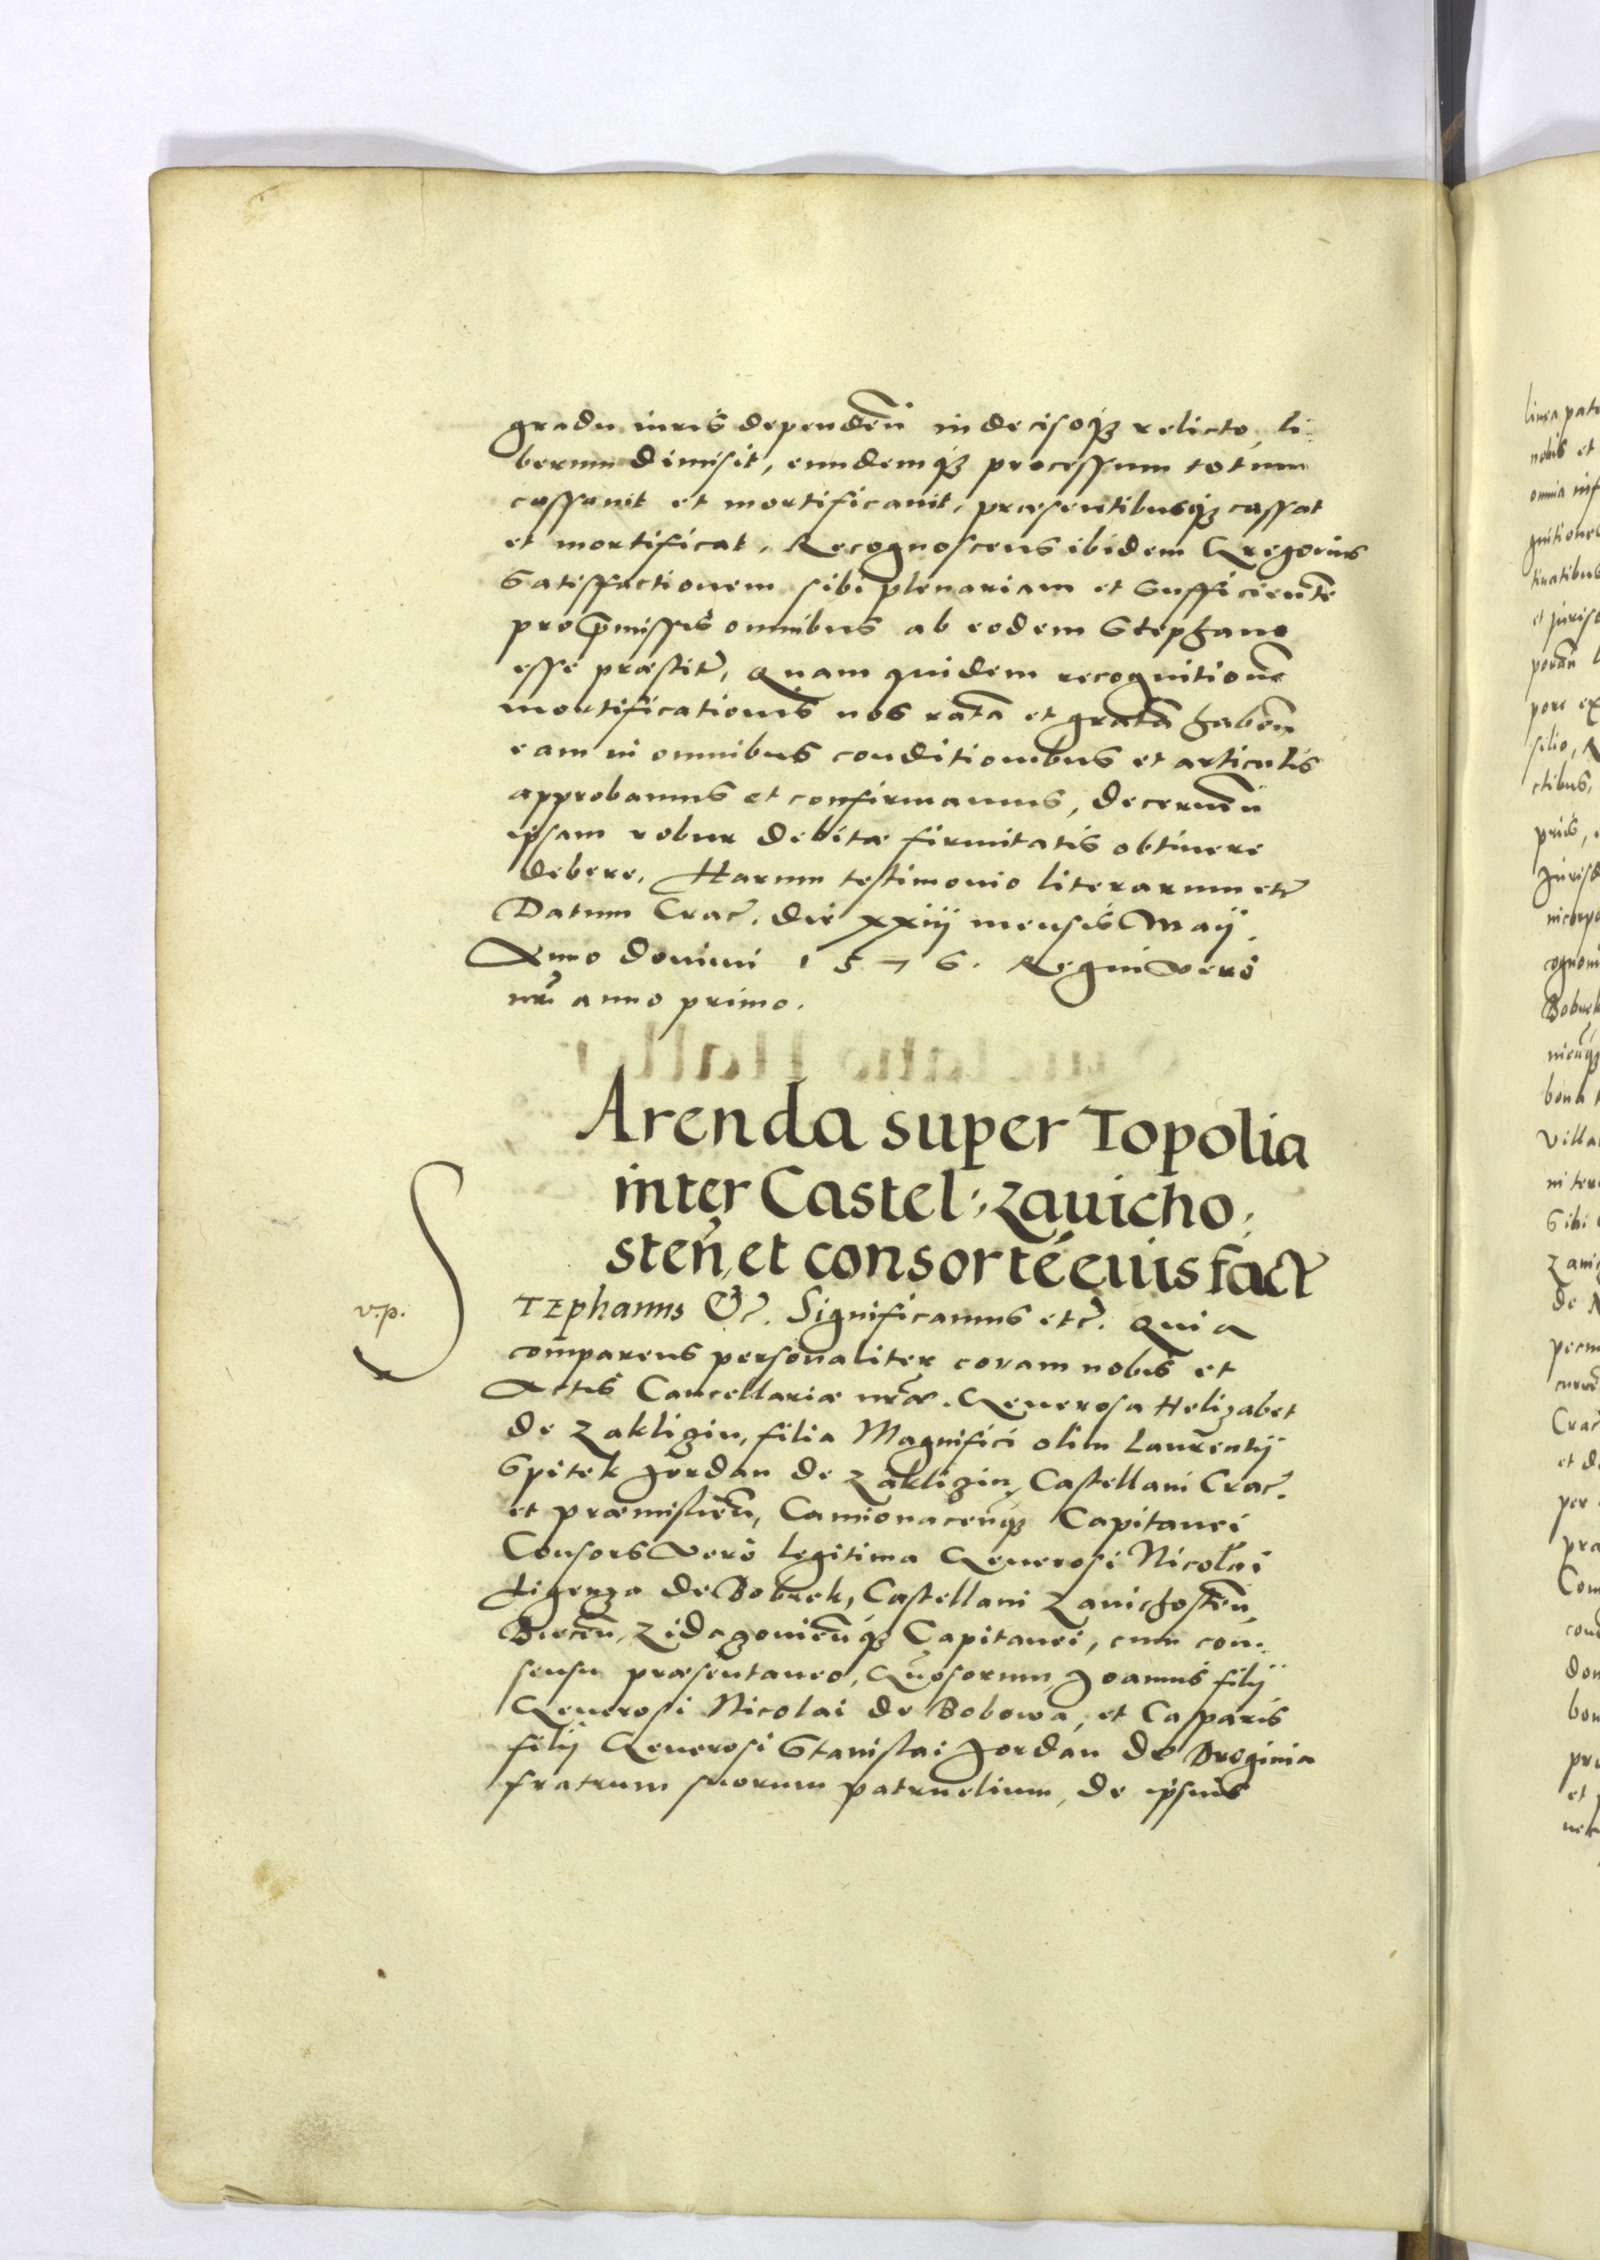 gradu iuris dependen̄ indecisoq₃ relicto, li-
berum dimisit, eundemq₃ processum totum
cassauit et mortificauit, præsentibusq₃ cassat
et mortificat, Recognoscens ibidem Gregorius
Satisfactionem sibi plenariam et sufficientē
pro p̄missis omnibus ab eodem Stephano
esse præstit̃, Quam quidem recognitionē
mortificationis nos ratā et gratā haben̄
eam in omnibus conditionibus et articulis
approbamus et confirmamus, decernen̄
ipsam robur debitæ firmitatis obtinere
debere, Harum testimonio literarum etc̃
Datum Crac̃. die xxiij mensis Maij.
Anno domini 1576. Regni vero
nr̃i anno primo.
Arenda super Topolia
inter Castel: Zauicho:
sten̄, et consortē eius fact̃
v.p.
STEphanus &c̃. Significamus etc̃. Quia
comparens personaliter coram nobis et
Actis Cancellariæ nr̃æ. Generosa Helizabet
de Zakligin, filia Magnifici olim Laurentij
Spitek Jordan de Zakligin, Castellani Crac̃.
et præmislien̄, Camionacen̄q₃ Capitanei
Consors vero legitima Generosi Nicolai
Ligenza de Bobrek, Castellani Zauichosten̄
Biecen̄, Zidagouien̄q₃ Capitanei, cum con-
sensu præsentaneo, Gn̄osorum, Joannis filij
Generosi Nicolai de Bobowa, et Casparis
filij Generosi Stanislai Jordan de Droginia
fratrum suorum patruelium, de ipsius